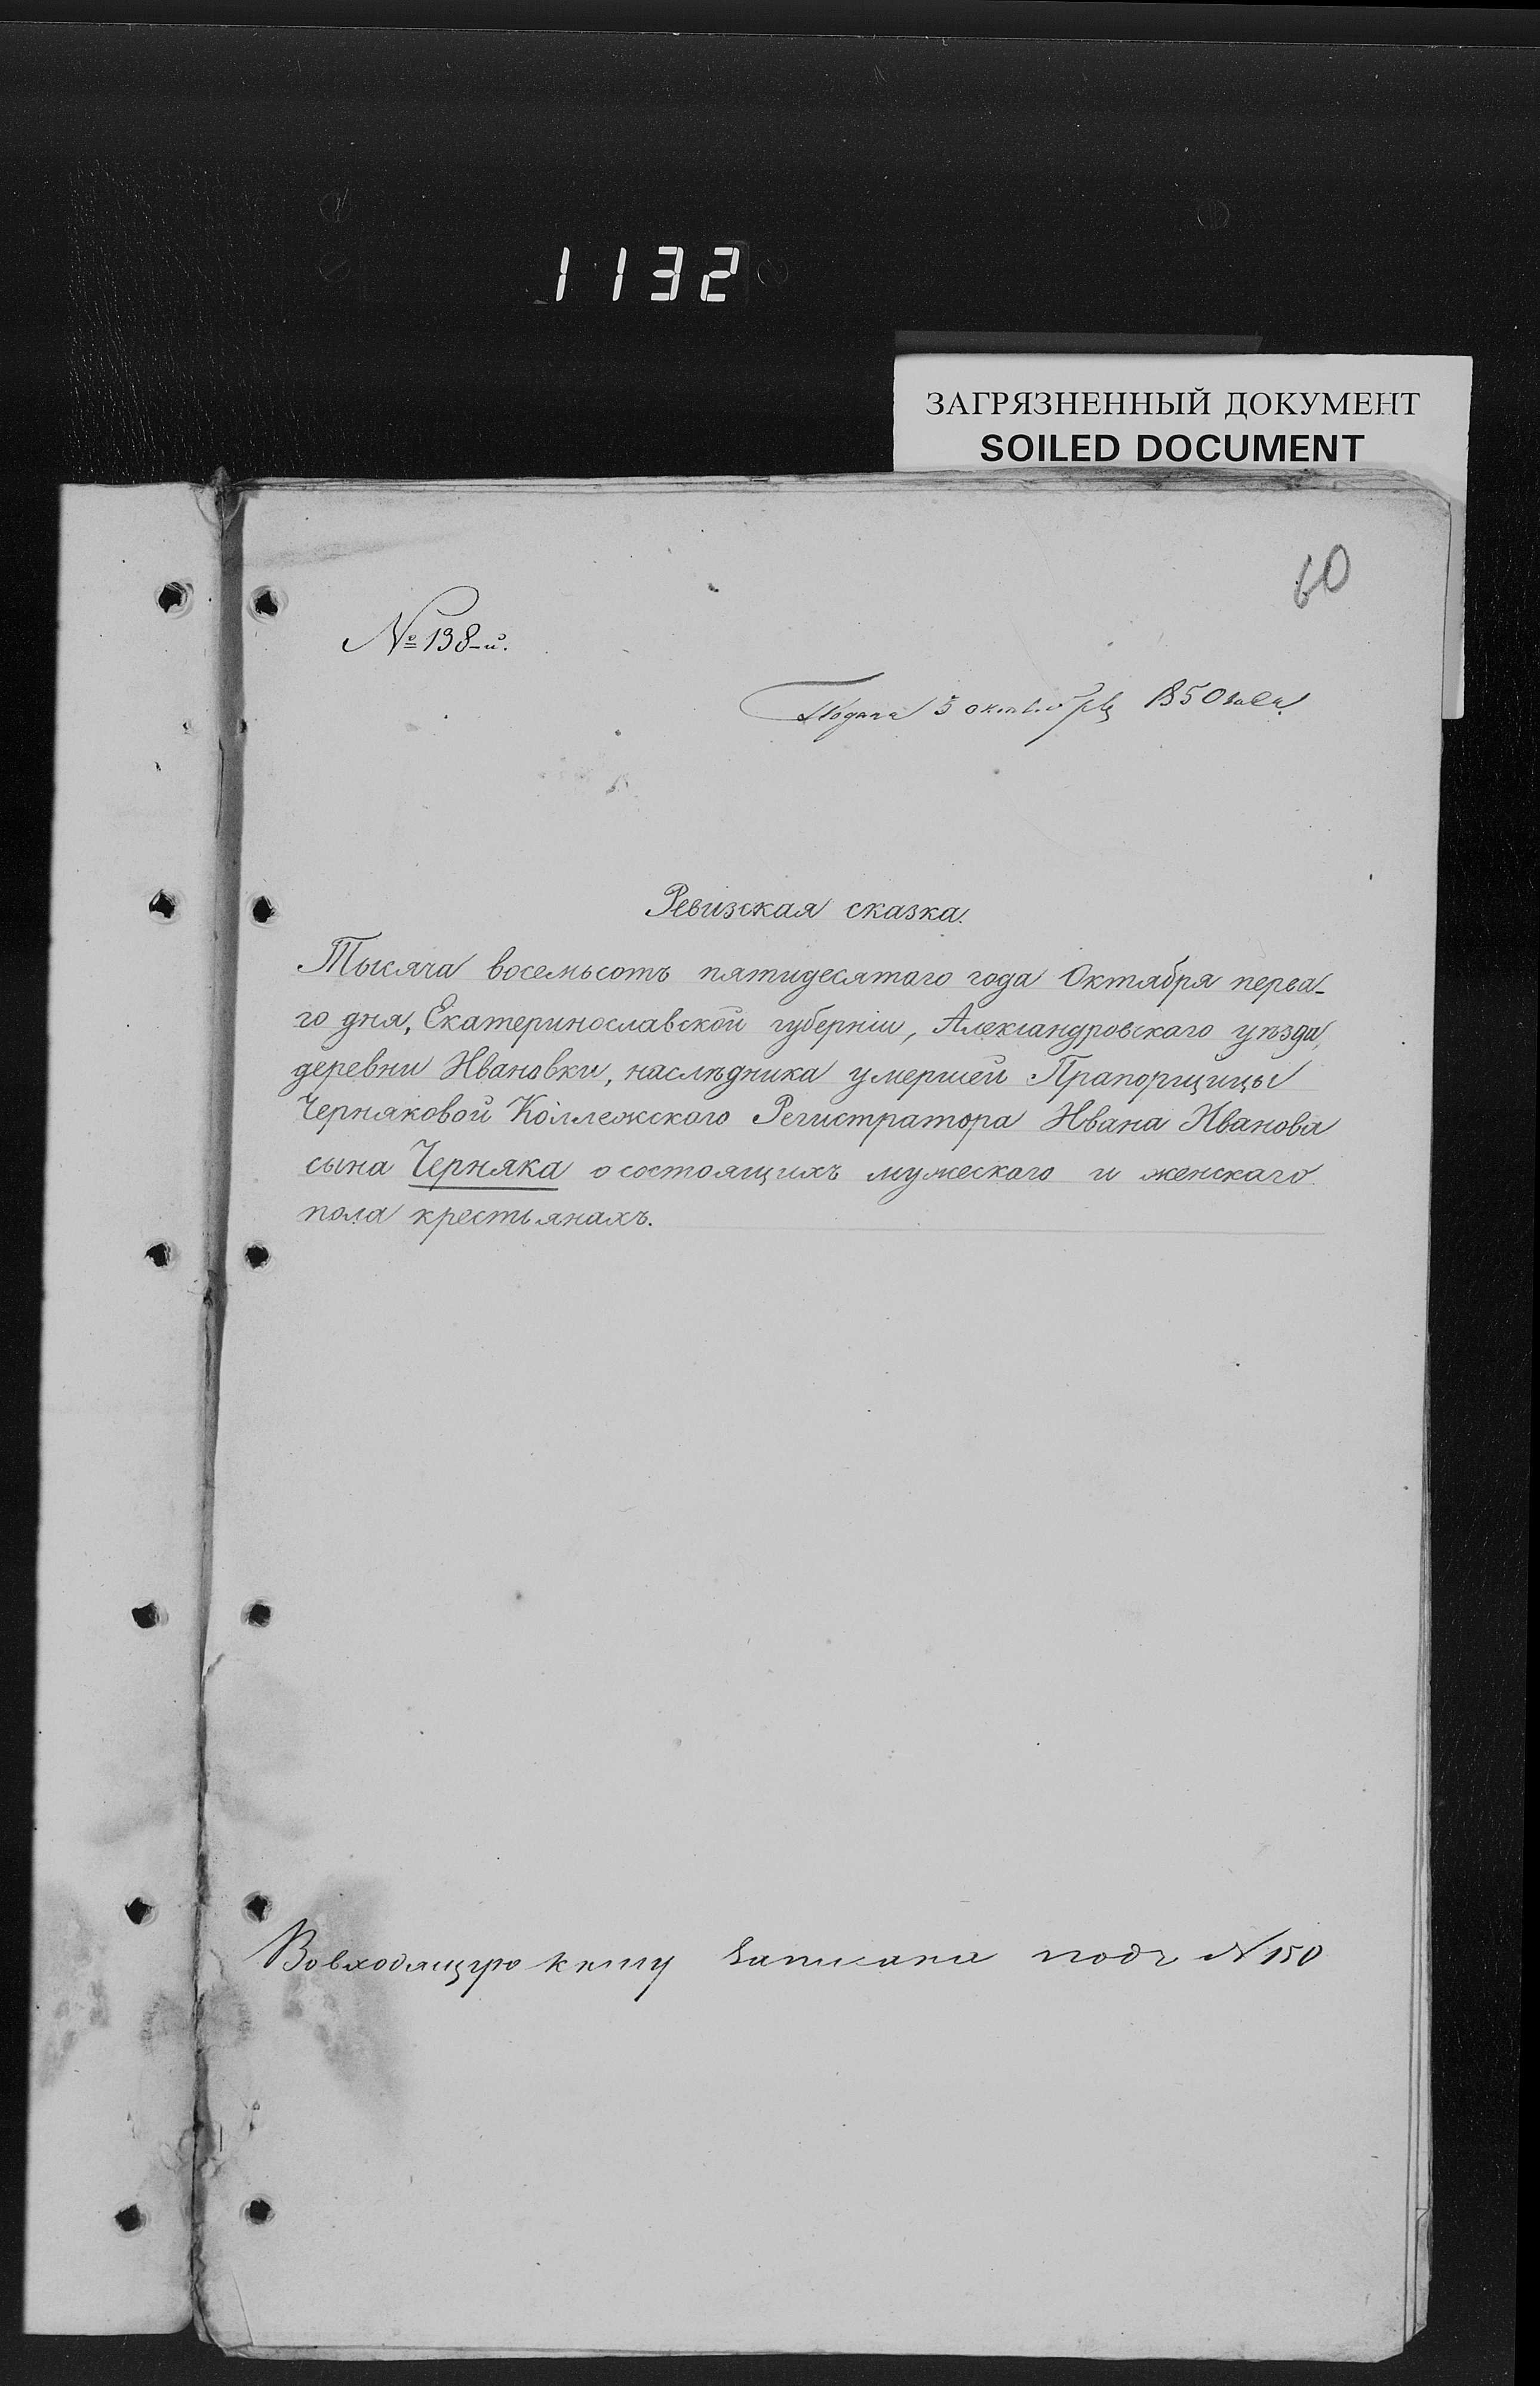 1132
ЗАГРЯЗНЕННЫЙ ДОКУМЕНТ
SOILED DOCUMENT
60
№ 138-й.
Подана 5 октября 1850 года
Ревизская сказка.
Тысяча восемьсотъ пятидесятаго года Октября перва-
го дня, Екатеринославской губерніи, Александровскаго уѣзда,
деревни Ивановки, наслѣдника умершей Прапорщицы
Черняковой Коллежскаго Регистратора Ивана Иванова
сына Черняка о состоящихъ мужескаго и женскаго
пола крестьянахъ.
Во входящую книгу записана подъ № 150